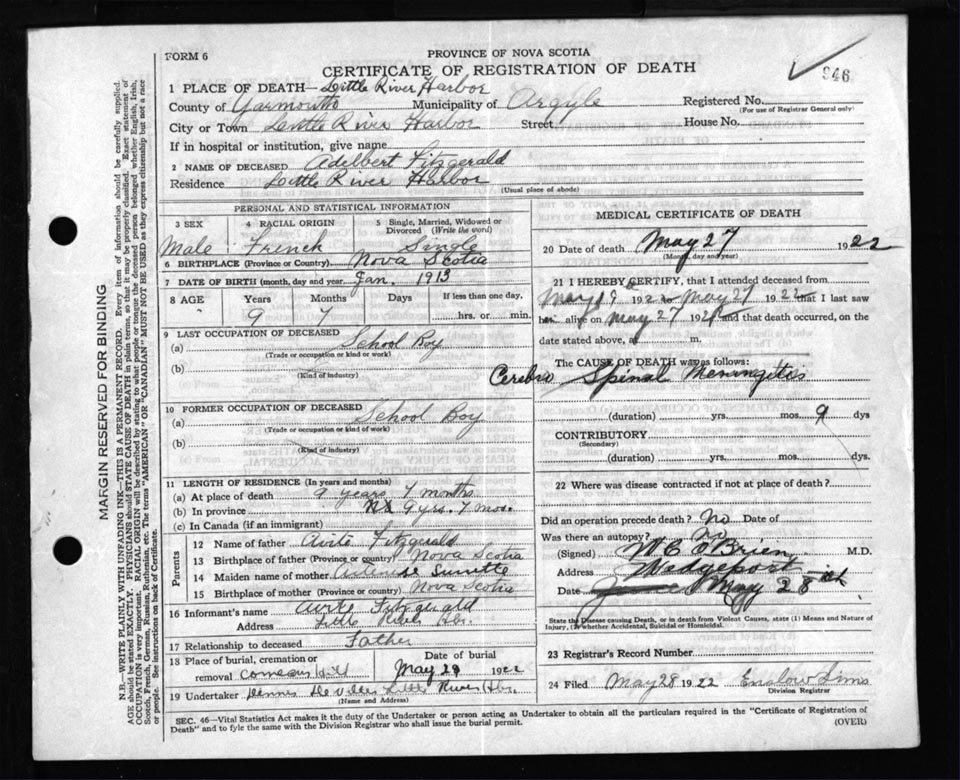 FORM 6
PROVINCE OF NOVA SCOTIA
CERTIFICATE OF REGISTRATION OF DEATH
946
1 PLACE OF DEATH—Little River Harbor
County of Yarmouth Municipality of Argyle Registered No.
(For use of Registrar General only)
City or Town Little River Harbor Street House No.
If in hospital or institution, give name
2 NAME OF DECEASED Adelbert Fitzgerald
Residence Little River Harbor
(Usual place of abode)
PERSONAL AND STATISTICAL INFORMATION
3 SEX 4 RACIAL ORIGIN 5 Single, Married, Widowed or
Divorced (Write the word)
Male French Single
6 BIRTHPLACE (Province or Country) Nova Scotia
7 DATE OF BIRTH (month, day and year) Jan. 1913
8 AGE Years Months Days If less than one day,
9 7 hrs. or min.
9 LAST OCCUPATION OF DECEASED
(a) School Boy
(Trade or occupation or kind or work)
(b)
(Kind of industry)
10 FORMER OCCUPATION OF DECEASED
(a) School Boy
(Trade or occupation or kind of work)
(b)
(Kind of industry)
11 LENGTH OF RESIDENCE (In years and months)
(a) At place of death 9 years 7 months
(b) In province N.S 9 yrs. 7 mos.
(c) In Canada (if an immigrant)
Parents
12 Name of father Avite Fitzgerald
13 Birthplace of father (Province or country) Nova Scotia
14 Maiden name of mother Surrette
15 Birthplace of mother (Province or country) Nova Scotia
16 Informant's name Avite Fitzgerald
Address Little River Hbr.
17 Relationship to deceased Father
18 Place of burial, cremation or Date of burial
removal Comeau Hill May 29 1922
19 Undertaker Little River Hbr.
(Name and Address)
MEDICAL CERTIFICATE OF DEATH
20 Date of death May 27 1922
(Month, day and year)
21 I HEREBY CERTIFY, that I attended deceased from
May 19 1922 to May 27 1922 that I last saw
h alive on May 27 192 and that death occurred, on the
date stated above, at m.
The CAUSE OF DEATH was as follows:
Cerebro Spinal Meningitis
(duration) yrs. mos. 9 dys
CONTRIBUTORY
(Secondary)
(duration) yrs. mos. dys.
22 Where was disease contracted if not at place of death?
Did an operation precede death? No Date of
Was there an autopsy? no
(Signed) W C O'Brien M.D.
Address Wedgeport
Date May 28th
State the Disease causing Death, or in death from Violent Causes, state (1) Means and Nature of
Injury, (2) whether Accidental, Suicidal or Homicidal.
23 Registrar's Record Number
24 Filed May 28 1922 Enslow Sims
Division Registrar
SEC. 46—Vital Statistics Act makes it the duty of the Undertaker or person acting as Undertaker to obtain all the particulars required in the "Certificate of Registration of
Death" and to fyle the same with the Division Registrar who shall issue the burial permit.
(OVER)
MARGIN RESERVED FOR BINDING
N.B.—WRITE PLAINLY WITH UNFADING INK—THIS IS A PERMANENT RECORD. Every item of information should be carefully supplied.
AGE should be stated EXACTLY. PHYSICIANS should STATE CAUSE OF DEATH in plain terms, so that it may be properly classified. Exact statement of
OCCUPATION is very important. RACIAL ORIGIN will be described by stating to what people or tongue the deceased person belonged whether English, Irish,
Scotch, French, German, Russian, Ruthenian, etc. The terms "AMERICAN" OR "CANADIAN" MUST NOT BE USED as they express citizenship but not a race
or people. See instructions on back of Certificate.